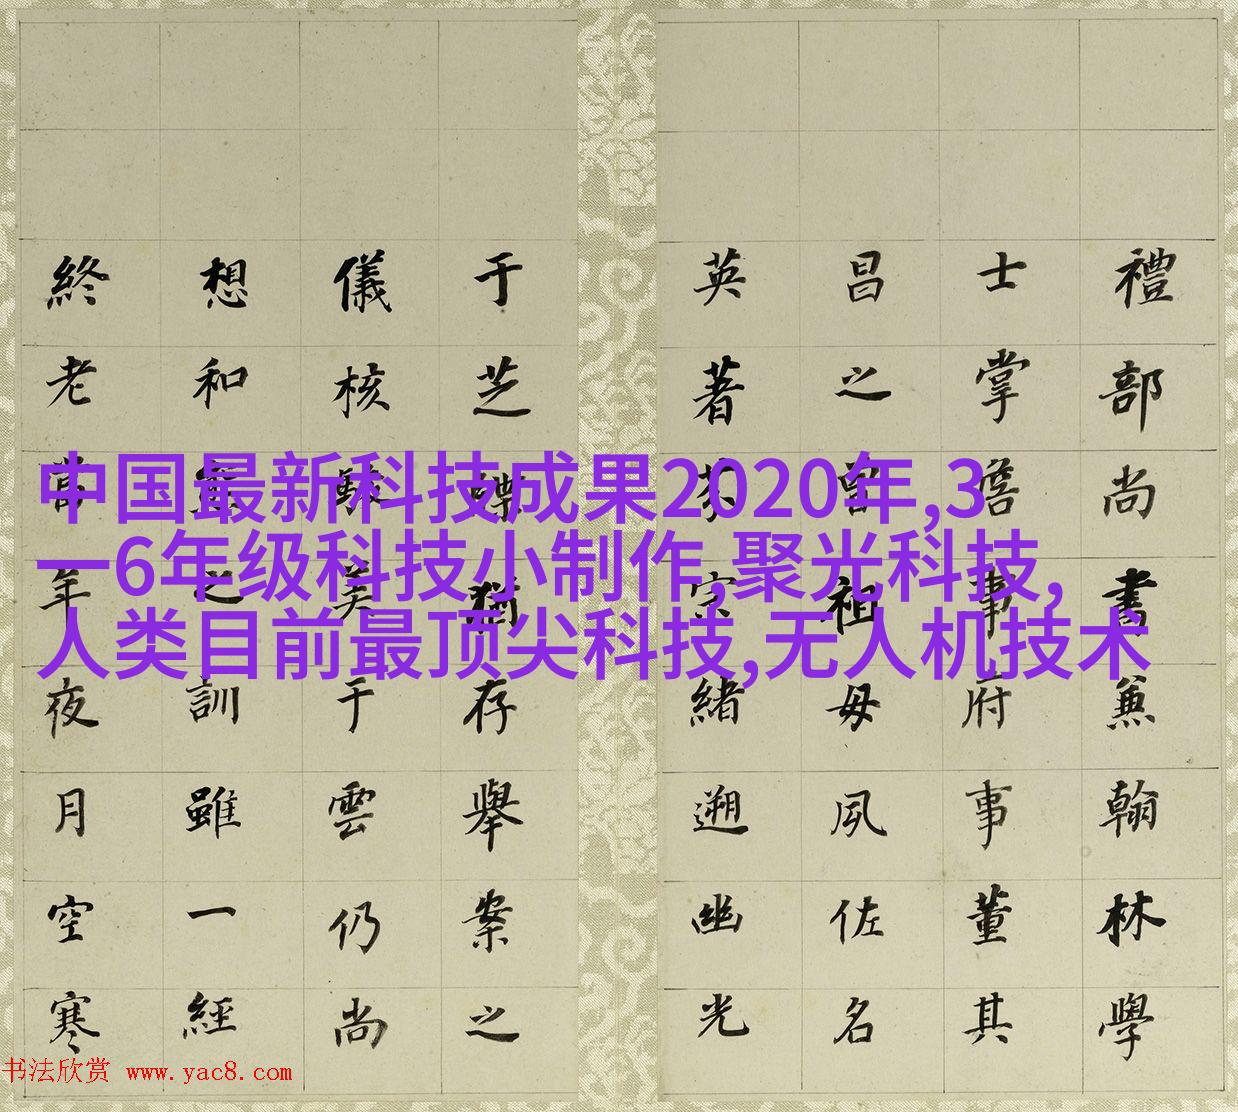 中国最新科技成果2020年,3
一6年级科技小制作,聚光科技,
人类目前最顶尖科技,无人机技术
禮部尚書兼翰林學
士掌詹事府事董其
昌之曾祖母夙佐名
英著宗緒遡幽光
于芝猶存舉案之
儀核美于雲仍尚
想和之訓雖一經
終老年夜月空寒
书法欣赏 www.yac8.com